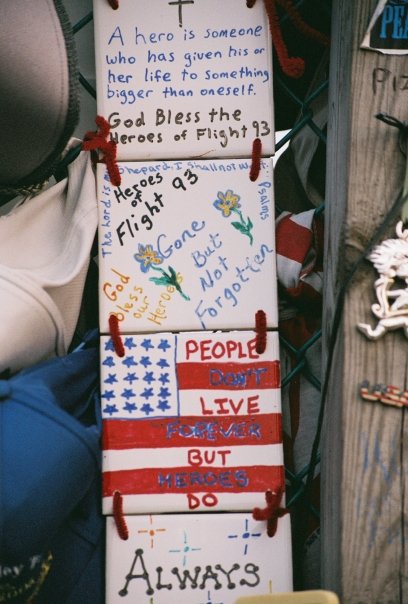 A hero is someone
who has given his or
her life to something
bigger than oneself.
God Bless the
Heroes of Flight 93
The Lord is
Shepard, I shall not
Psalms
Heroes
of
Flight 93
Gone
But
Not
Forgotten
God
Bless
our
Heroes
PEOPLE
DON'T
LIVE
FOREVER
BUT
HEROES
DO
ALWAYS
PEA